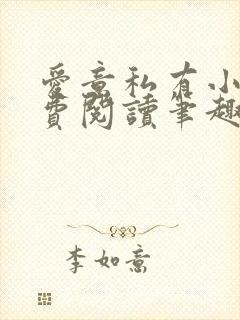 愛意私有小
費閱讀筆趣
李如意